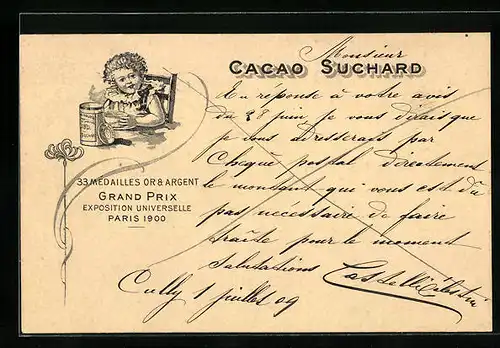 Monsieur
CACAO SUCHARD
En réponse à votre avis
du 28 juin je vous dirais que
je vous adresserais par
Chèque postal directement
le montant qui vous est dû
pas nécessaire de faire
traîte pour le moment
salutations
Cully 1 juillet 09
33 MEDAILLES OR & ARGENT
GRAND PRIX
EXPOSITION UNIVERSELLE
PARIS 1900